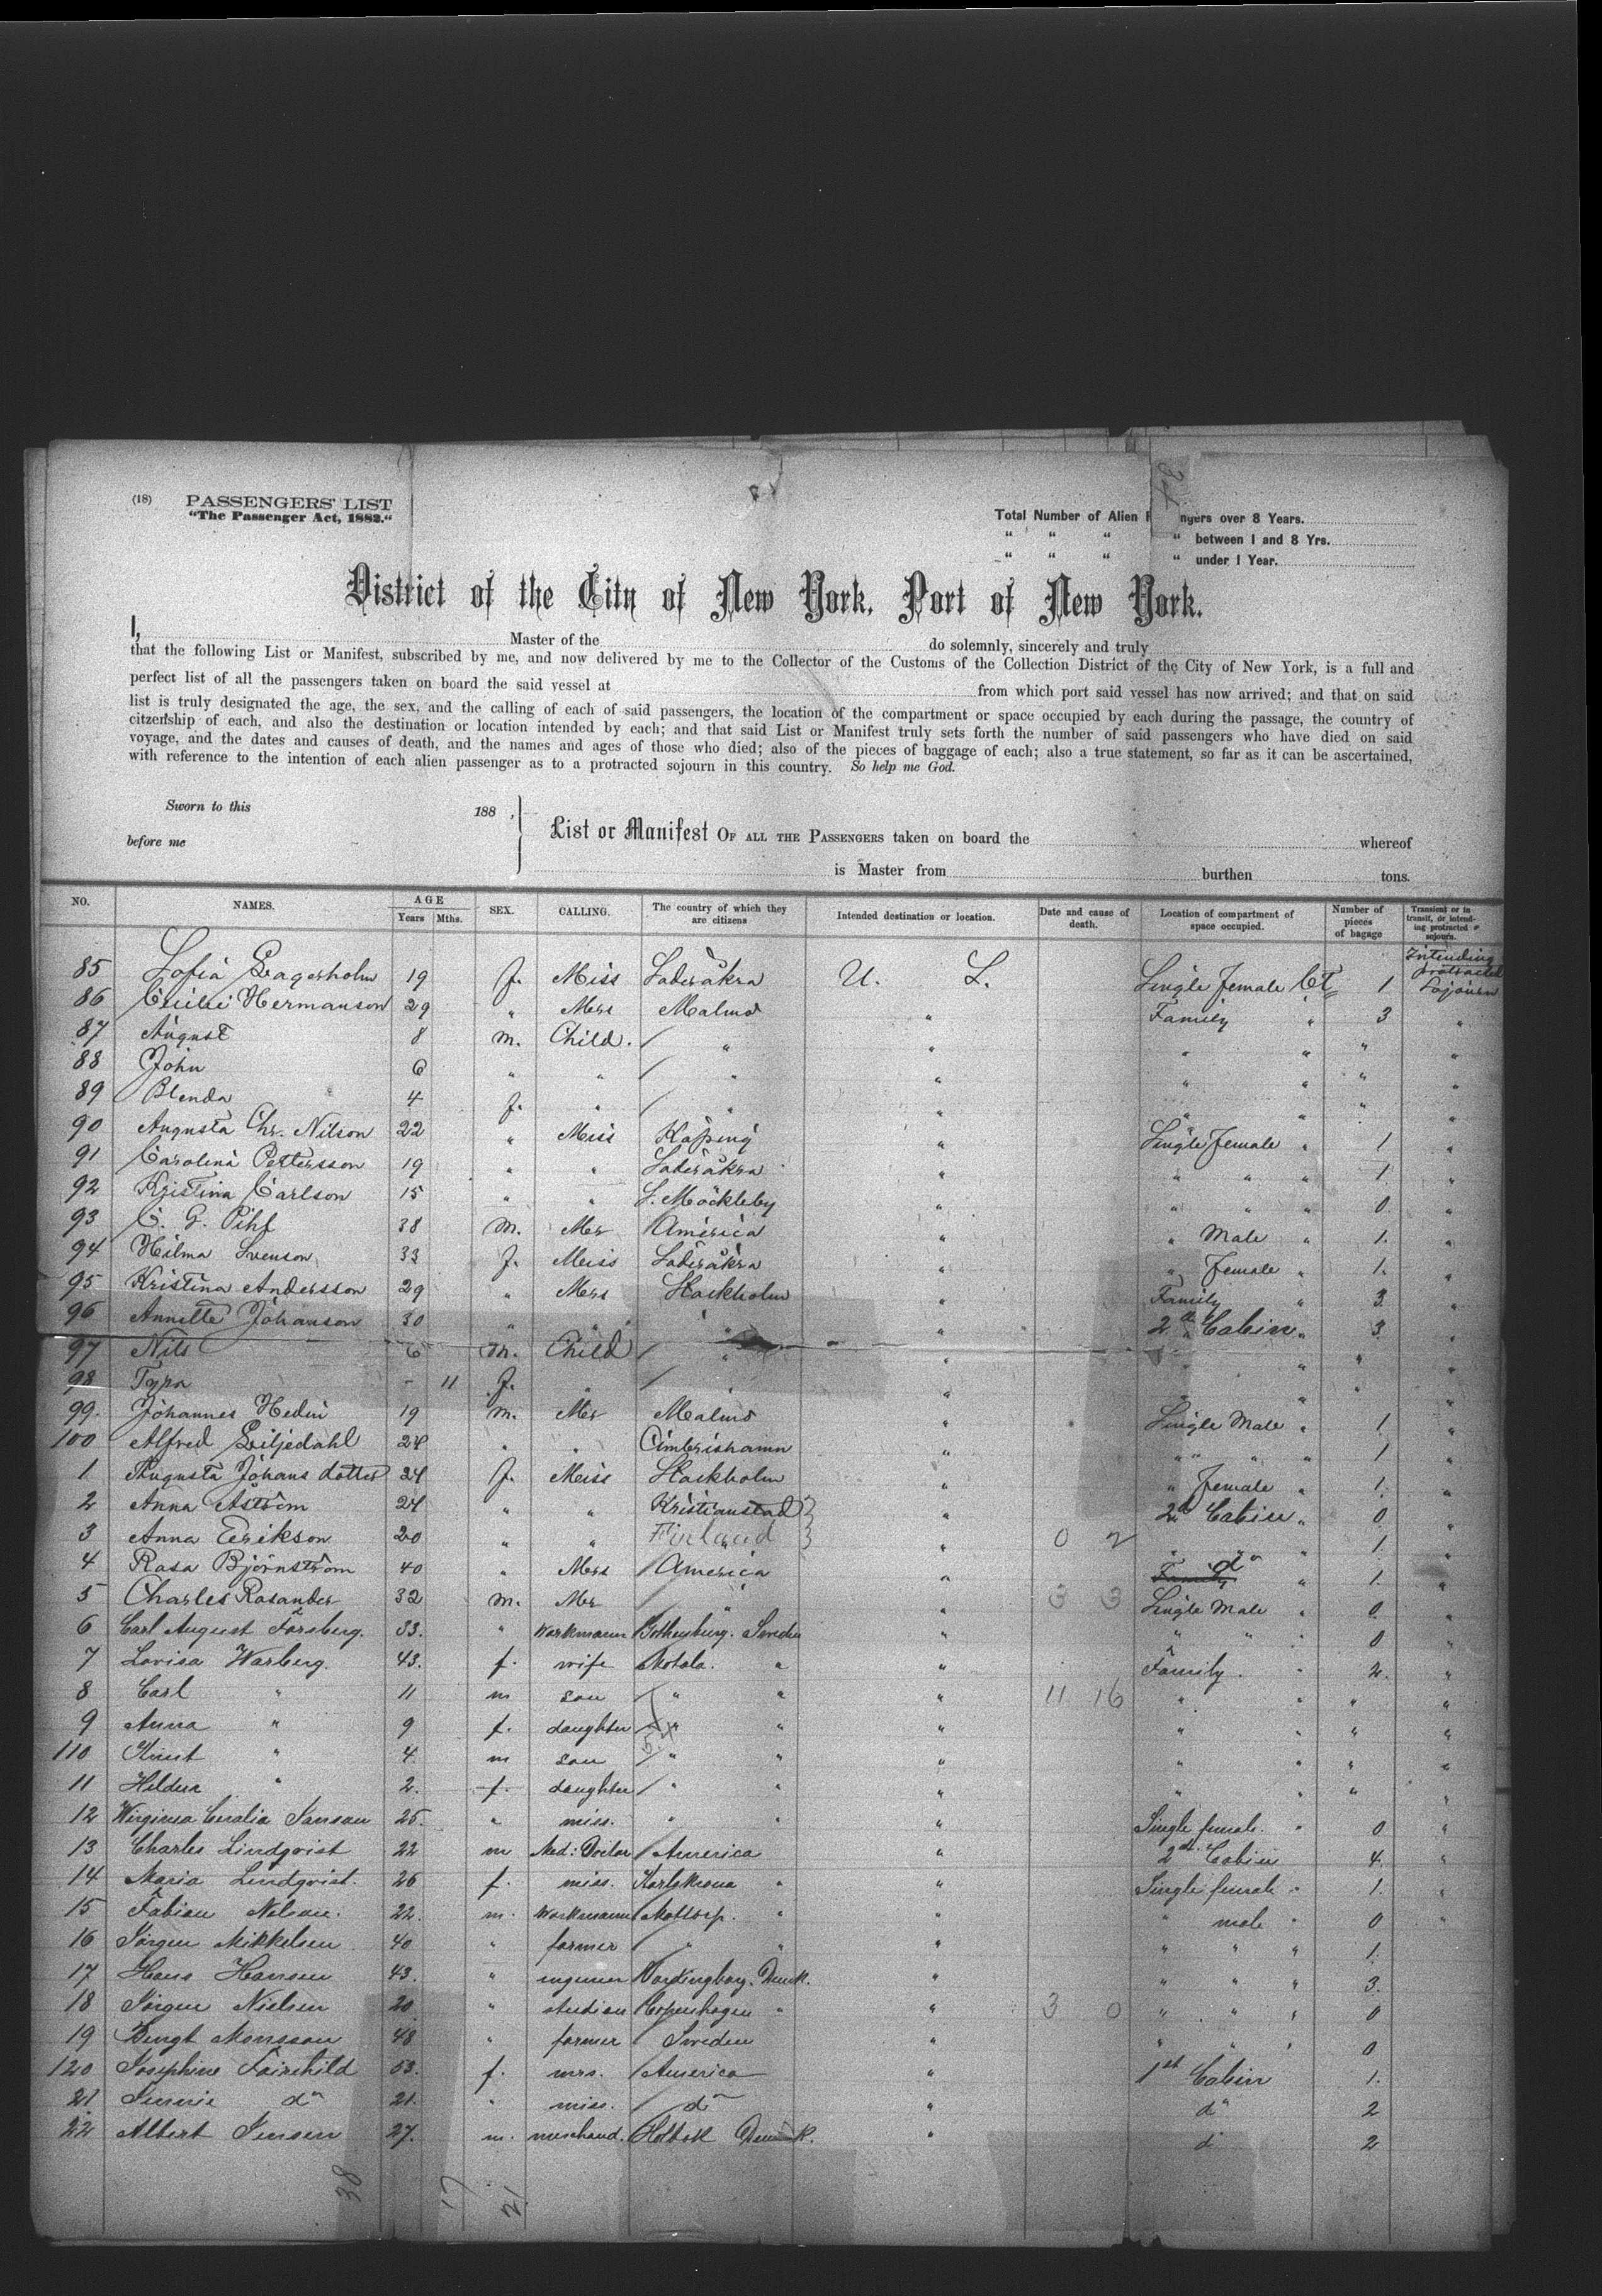 (18) PASSENGERS' LIST
"The Passenger Act, 1882."
Total Number of Alien ngers over 8 Years.
" " " " between 1 and 8 Yrs.
" " " " under 1 Year.
District of the City of New York, Port of New York.
I, Master of the do solemnly, sincerely and truly
that the following List or Manifest, subscribed by me, and now delivered by me to the Collector of the Customs of the Collection District of the City of New York, is a full and
perfect list of all the passengers taken on board the said vessel at from which port said vessel has now arrived; and that on said
list is truly designated the age, the sex, and the calling of each of said passengers, the location of the compartment or space occupied by each during the passage, the country of
citzenship of each, and also the destination or location intended by each; and that said List or Manifest truly sets forth the number of said passengers who have died on said
voyage, and the dates and causes of death, and the names and ages of those who died; also of the pieces of baggage of each; also a true statement, so far as it can be ascertained,
with reference to the intention of each alien passenger as to a protracted sojourn in this country. So help me God.
Sworn to this 188 ,
before me
List or Manifest OF ALL THE PASSENGERS taken on board the whereof
is Master from burthen tons.
NO. NAMES. AGE Years Mths. SEX. CALLING. The country of which they are citizens Intended destination or location. Date and cause of death. Location of compartment of space occupied. Number of pieces of bagage Transient or in transit, or intending protracted sojourn.
85 Sofia Lagerholm 19 f. Miss Söderåkra U. S. Single female Ct 1 Intending protracted Sojourn
86 Cecilie Hermanson 29 " Mrs Malmö " Family " 3 "
87 August 8 m. Child. " " " " " "
88 John 6 " " " " " " " "
89 Blenda 4 f. " " " " " " "
90 Augusta Chr. Nilson 22 " Miss Köping " Single female " 1 "
91 Carolina Pettersson 19 " " Söderåkra " " " " 1 "
92 Kristina Carlson 15 " " S. Möckleby " " " " 0 "
93 C. G. Pihl 38 m. Mr America " " Male " 1. "
94 Hilma Svenson 33 f. Miss Söderåkra " " Female " 1. "
95 Kristina Andersson 29 " Mrs Stockholm " Family " 3 "
96 Annette Johanson 30 " " " " 2d Cabin " 3 "
97 Nils 6 m. Child " " " " " "
98 - 11 f. " " " " " "
99. Johannes Hedin 19 m. Mr Malmö " Single Male " 1. "
100 Alfred Liljedahl 24 " " Cimbrishamn " " " " 1 "
1 Augusta Johans dotter 24 f. Miss Stockholm " " Female " 1. "
2 Anna Åström 24 " " Kristianstad " 2d Cabin " 0 "
3 Anna Erikson 20 " " Finland " 0 2 " " " 1. "
4 Rosa Björnström 40 " Mrs America " Family do " 1. "
5 Charles Rosander 32 m. Mr " " 3 3 Single Male " 0. "
6 Carl August Forsberg. 33. " Workmann Gothenburg. Sweden " " " " 0 "
7 Lovisa Warberg. 43. f. wife Motala. " " Family. " 2. "
8 Carl " 11 m son " " " 11 16 " " " "
9 Anna " 9 f. daughter " " " " " " "
110 Knut " 4 m son " " " " " " "
11 Hildur " 2. f. daughter " " " " " " "
12 Wirginia Emalia Janson 25. " miss. " " " Single female. " 0 "
13 Charles Lindqvist 22 m Med: Doctor America " 2d Cabin 4. "
14 Maria Lindqvist. 26 f. miss. Karlskrona " " Single female " 1. "
15 Fabian Nelson. 22. m. Workmann " " " male " 0 "
16 Jörgen Mikkelsen 40 " farmer " " " " " " 1.
17 Hans Hansen 43. " Wordingborg. Denk. " " " " 3.
18 Jörgen Nielsen 20 " Copenhagen " " 3 0 " " " 0
19 Bengt Monsson 48 " farmer Sweden " " " " 0
120 Josephine Fairchild 53. f. mrs. America " 1st Cabin 1.
21 Jennie do 21. " miss. do " do 2
22 Albert Jensen 27. m. merchand. Holbek Denmk. " do 2
38 17 21